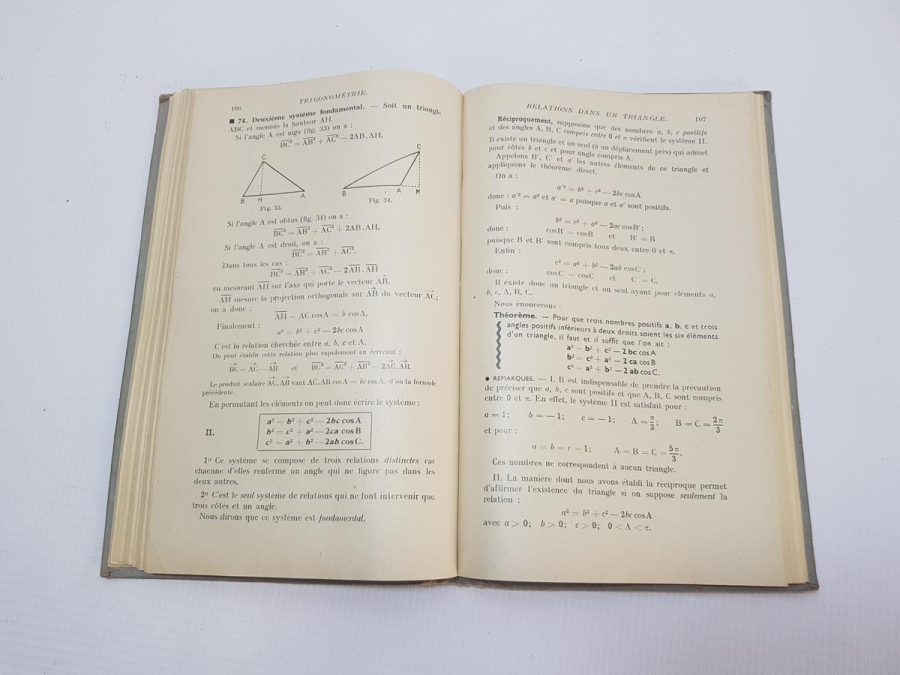 106 TRIGONOMÉTRIE.
■ 74. Deuxième système fondamental. — Soit un triangle
ABC et menons la hauteur AH.
Si l'angle A est aigu (fig. 33) on a :
BC² = AB² + AC² — 2AB.AH.
C
B H A
Fig. 33.
C
B A H
Fig. 34.
Si l'angle A est obtus (fig. 34) on a :
BC² = AB² + AC² + 2AB.AH.
Si l'angle A est droit, on a :
BC² = AB² + AC².
Dans tous les cas :
BC² = AB² + AC² — 2AB.AH
en mesurant AH sur l'axe qui porte le vecteur AB.
AH mesure la projection orthogonale sur AB du vecteur AC;
on a donc :
AH = AC cos A = b cos A.
Finalement :
a² = b² + c² — 2bc cos A
C'est la relation cherchée entre a, b, c et A.
On peut établir cette relation plus rapidement en écrivant :
BC = AC — AB et BC² = AC² + AB² — 2AC.AB.
Le produit scalaire AC.AB vaut AC.AB cos A = bc cos A, d'où la formule
précédente.
En permutant les éléments on peut donc écrire le système :
II.
a² = b² + c² — 2bc cos A
b² = c² + a² — 2ca cos B
c² = a² + b² — 2ab cos C.
1º Ce système se compose de trois relations distinctes car
chacune d'elles renferme un angle qui ne figure pas dans les
deux autres.
2º C'est le seul système de relations qui ne font intervenir que
trois côtés et un angle.
Nous dirons que ce système est fondamental.
RELATIONS DANS UN TRIANGLE. 107
Réciproquement, supposons que des nombres a, b, c positifs
et des angles A, B, C compris entre 0 et π vérifient le système II.
Il existe un triangle et un seul (à un déplacement près) qui admet
pour côtés b et c et pour angle compris A.
Appelons B′, C′ et a′ les autres éléments de ce triangle et
appliquons le théorème direct.
On a :
a′² = b² + c² — 2bc cos A
donc : a′² = a² et a′ = a puisque a et a′ sont positifs.
Puis :
b² = c² + a² — 2ac cos B′;
donc : cos B′ = cos B et B′ = B
puisque B et B′ sont compris tous deux entre 0 et π.
Enfin :
c² = a² + b² — 2ab cos C′;
donc : cos C′ = cos C et C′ = C.
Il existe donc un triangle et un seul ayant pour éléments a,
b, c, A, B, C.
Nous énoncerons :
Théorème. — Pour que trois nombres positifs a, b, c et trois
angles positifs inférieurs à deux droits soient les six éléments
d'un triangle, il faut et il suffit que l'on ait :
a² = b² + c² — 2 bc cos A
b² = c² + a² — 2 ca cos B
c² = a² + b² — 2 ab cos C.
● REMARQUES. — I. Il est indispensable de prendre la précaution
de préciser que a, b, c sont positifs et que A, B, C sont compris
entre 0 et π. En effet, le système II est satisfait pour :
a = 1; b = — 1; c = — 1; A = π/3; B = C = 2π/3
et pour :
a = b = c = 1; A = B = C = 5π/3.
Ces nombres ne correspondent à aucun triangle.
II. La manière dont nous avons établi la réciproque permet
d'affirmer l'existence du triangle si on suppose seulement la
relation :
a² = b² + c² — 2bc cos A
avec a > 0; b > 0; c > 0; 0 < A < π.